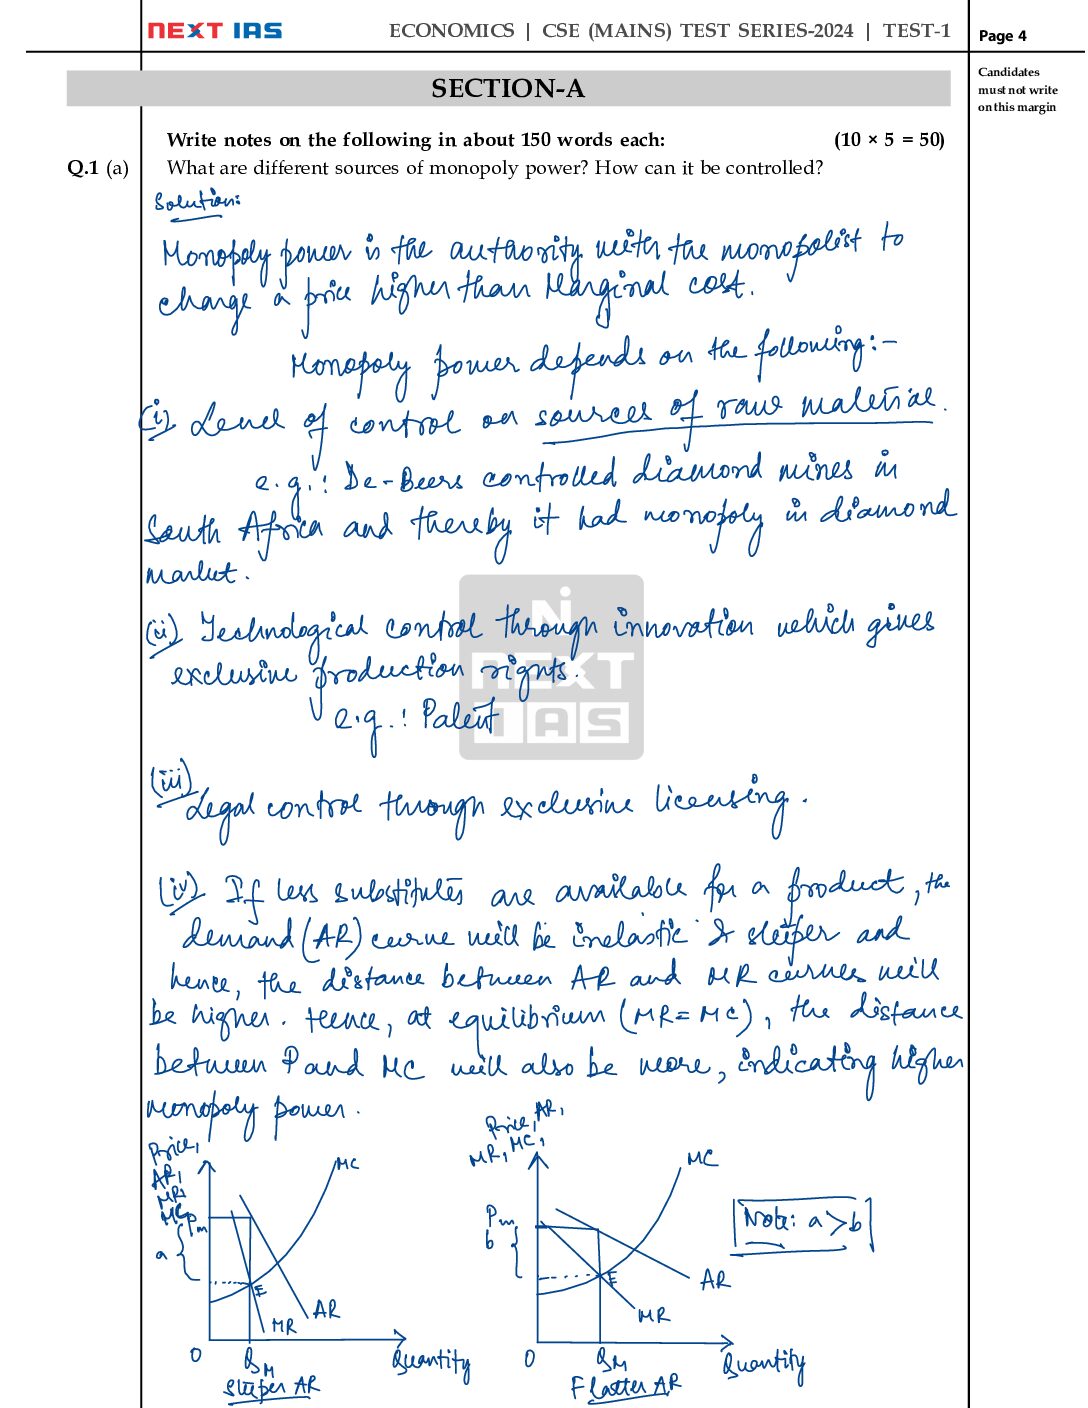 NEXT IAS
ECONOMICS | CSE (MAINS) TEST SERIES-2024 | TEST-1
Page 4
Candidates
must not write
on this margin
SECTION-A
Write notes on the following in about 150 words each: (10 × 5 = 50)
Q.1 (a) What are different sources of monopoly power? How can it be controlled?
Solution:
Monopoly power is the authority with the monopolist to
charge a price higher than Marginal cost.
Monopoly power depends on the following:-
(i) Level of control on sources of raw material.
e.g.: De-Beers controlled diamond mines in
South Africa and thereby it had monopoly in diamond
market.
(ii) Technological control through innovation which gives
exclusive production rights.
e.g.: Patent
(iii) Legal control through exclusive licensing.
(iv) If less substitutes are available for a product, the
demand (AR) curve will be inelastic & steeper and
hence, the distance between AR and MR curves will
be higher. Hence, at equilibrium (MR=MC), the distance
between P and MC will also be more, indicating higher
monopoly power.
Price,
AR,
MR,
MC
Pm
a
MC
E
AR
MR
O
QM
Quantity
Steeper AR
Price, AR,
MR, MC,
Pm
b
MC
E
AR
MR
O
QM
Quantity
Flatter AR
Note: a>b
NEXT
IAS